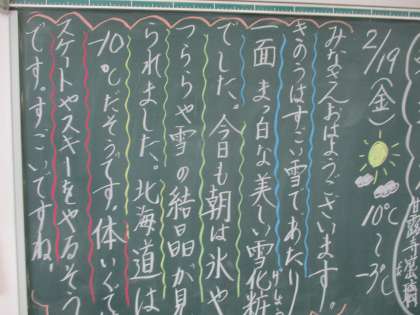 2/19
(金)
10℃
〜
-3℃
みなさんおはようございます。
きのうはすごい雪であたり
一面 まっ白な美しい雪化粧
げしょう
でした。今日も朝は氷や
つららや雪の結晶が見
られました。北海道は
-10℃だそうです。体いくで
スケートやスキーをやるそう
です。すごいですね。